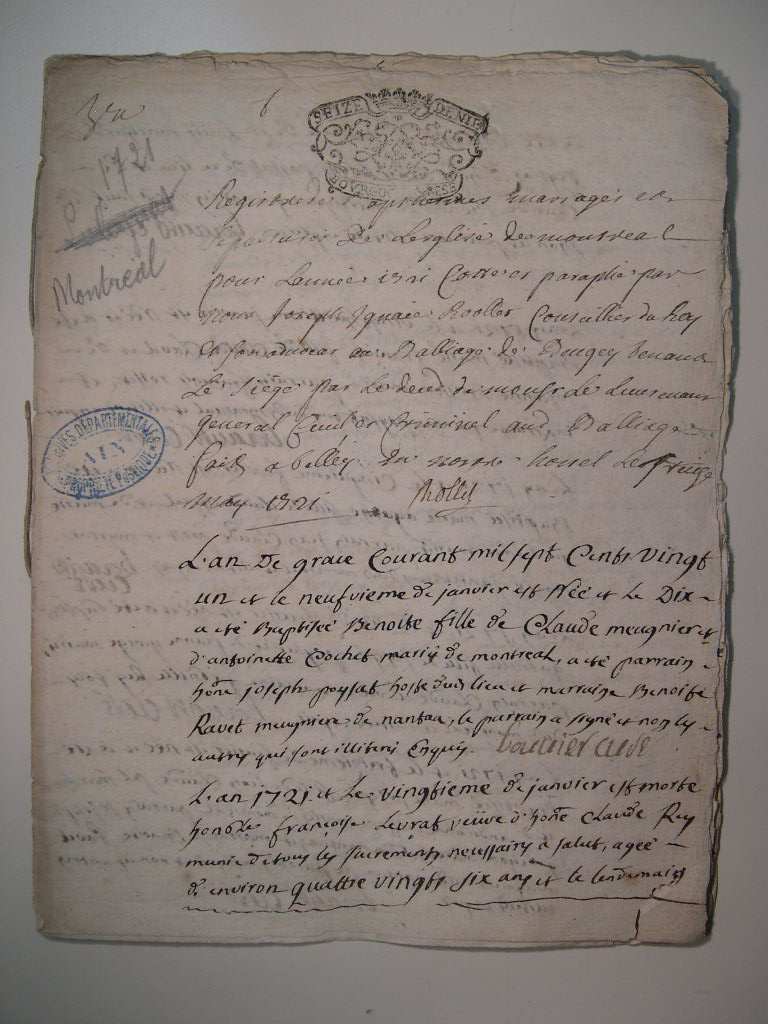 1721
Montreal
SEIZE DENIE
mariages et
de Leglise de montreal
pour Lannée 1721 Cotte et paraphé par
nous Joseph Ignace Rollet Conseiller du Roy
au Balliage de Bugey tenant
Le siege par Le deced de monsr Le Lieutenant
general Civil et Criminel aud Balliage
fait a belley en nostre hostel Le
May 1721 Rollet
ARCHIVES DÉPARTEMENTALES
AIN
PROPRIÉTÉ PUBLIQUE
L'an De grace Courant mil sept Cents Vingt
un et le neufvieme de janvier est Née et Le Dix
a eté Baptisée Benoite fille de Claude meugnier et
d'antoinette Cochet mariés de montreal, a eté parrain
hōne joseph poysat hoste dud lieu et marraine Benoite
Ravet meugniere de nantua, le parrain a signé et non les
autres qui sont illitérés Enquis
curé
L'an 1721 et Le vingtieme de janvier est morte
honble françoise Levrat veuve d'hōne Claude Rey
munie de tous les sacrements necessaires à salut, agée
d'environ quattre vingts six ans et le lendemain